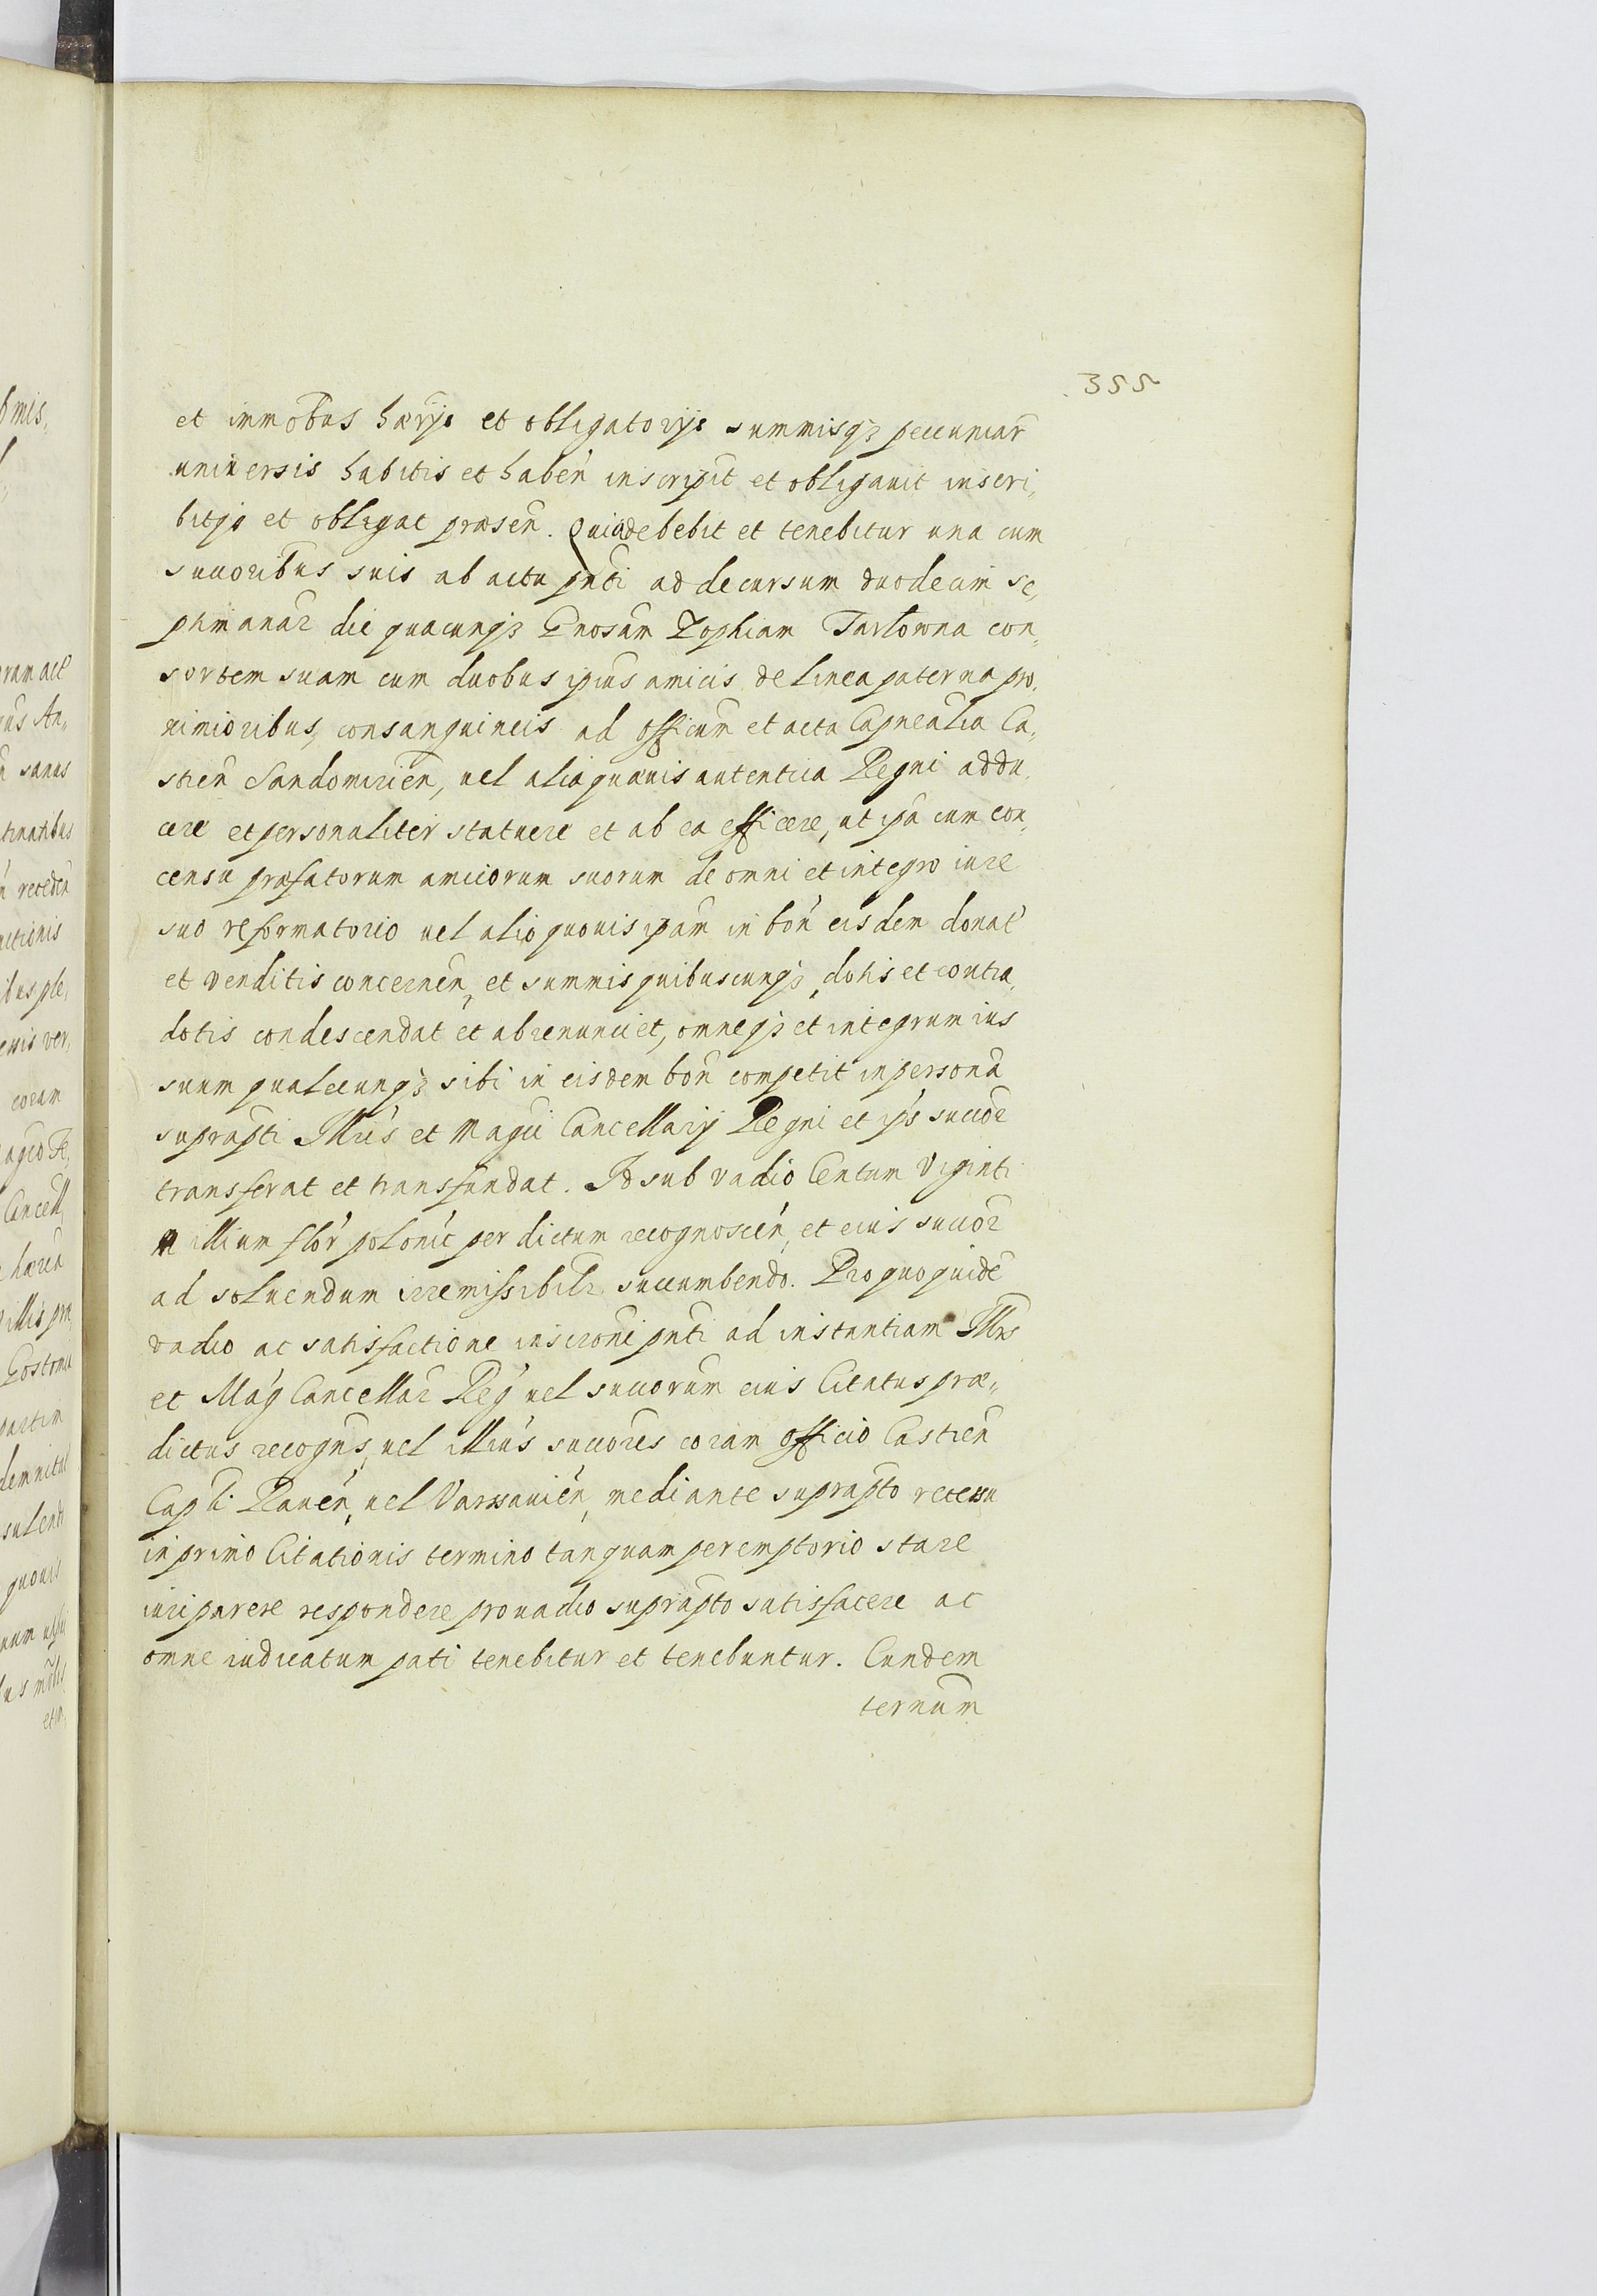 355
et immobus haerijs et obligatorijs summisq3 pecuniar
universis habitis et haben inscripsit et obligauit inscri,
bitq3 et obligat praesen. Quia debebit et tenebitur una cum
succoribus suis ab actu pnti ad decursum duodecim se,
ptimanar die quacunq3 Gnosam Zophiam Tarlowna con,
sortem suam cum duobus ipius amicis de linea paterna pro,
ximioribus, consanguineis ad officium et acta Capnealia Ca,
stren Sandomirien, uel alia quaeuis autentica Regni addu,
cere et personaliter statuere et ab ea efficere, ut ipa cum con,
censu praefatorum amicorum suorum de omni et integro iure
suo reformatorio uel alio quouis ipam in bon eisdem donat
et venditis concernen, et summis quibuscunq3, dotis et contra,
dotis condescendat et abrenunciet, omneq3 et integrum ius
suum qualecunq3 sibi in eisdem bon competit in persona
suprapti Illris et Magci Cancellarij Regni et ips succor
transferat et transfundat. Id sub vadio Centum Viginti
Millium flor polonic per dictum recognoscen, et eius succor
ad soluendum irremissibilr succumbendo. Pro quoquide
vadio ac satisfactione inscroni pnti ad instantiam Illris
et Mag Cancellar Reg uel succorum eius Citatus prae,,
dictus recogns, uel illius succores coram officio Castren
Capli Rauen, uel Varssauien, mediante suprapto recessu
in primo Citationis termino tanquam peremptorio stare
iuri parere respondere pro uadio suprapto satisfacere ac
omne iudicatum pati tenebitur et tenebuntur. Eundem
ternum